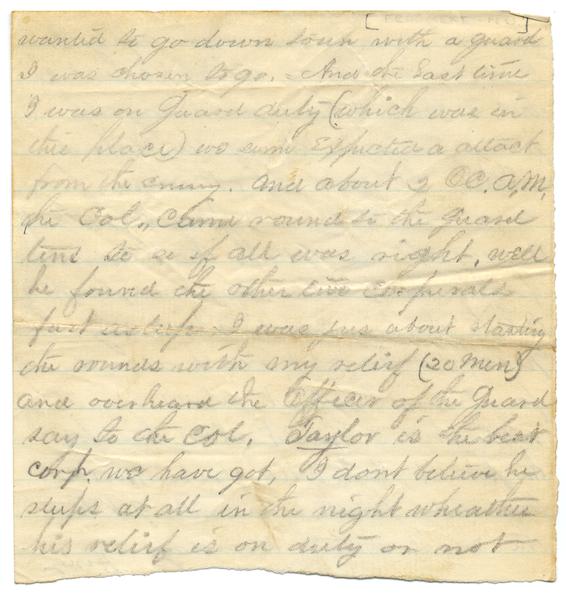 wanted to go down town with a guard
I was chosen to go. And the last time
I was on Guard duty (which was in
this place) we some Expected a attact
from the enemy. And about 2 OC. A.M.
the Col., Came round to the Guard
tent to se if all was right, well
he found the other two Corperals
fast asleep. I was jus about starting
the rounds with my relief (20 Men)
and over heard the Officer of the Guard
say to the Col. Taylor is the best
corp. we have got, I dont believe he
sleeps at all in the night wheather
his relief is on duty or not